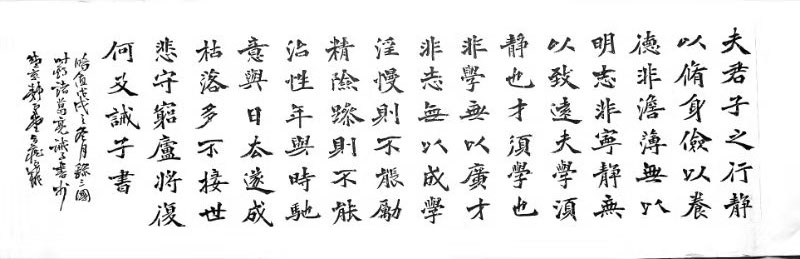 夫君子之行静
以脩身儉以養
德非澹薄無以
明志非寧静無
以致遠夫學須
静也才須學也
非學無以廣才
非志無以成學
淫慢則不能勵
精險躁則不能
治性年與時馳
意與日去遂成
枯落多不接世
悲守窮廬將復
何及誡子書
戊戌之冬月錄三國
諸葛亮誡子書於